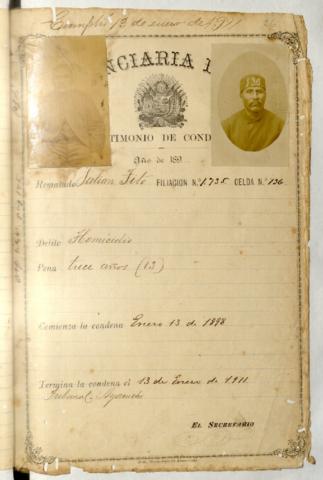 Cumplió 13 de enero de 1911
NCIARIA
TIMONIO DE COND
Año de 189
Rematado Julian Tito FILIACION N.º 1.735 CELDA N.º 136
Delito Homicidio
Pena trece años (13)
Comienza la condena Enero 13 de 1898
Termina la condena el 13 de Enero de 1911.
Ayacucho
EL SECRETARIO